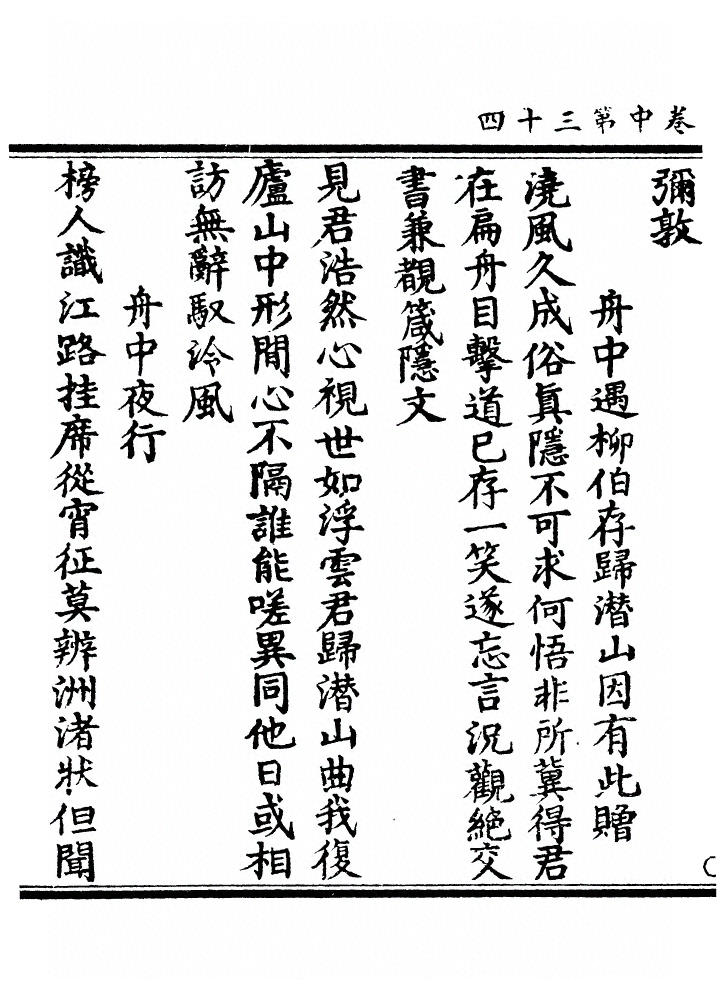 卷中第三十四
彌敦
舟中遇柳伯存歸潛山因有此贈
澆風久成俗真隱不可求何悟非所冀得君
在扁舟目擊道已存一笑遂忘言況觀絕交
書兼覩箴隱文
見君浩然心視世如浮雲君歸潛山曲我復
廬山中形間心不隔誰能嗟異同他日或相
訪無辭馭泠風
舟中夜行
榜人識江路挂席從宵征莫辨洲渚狀但聞